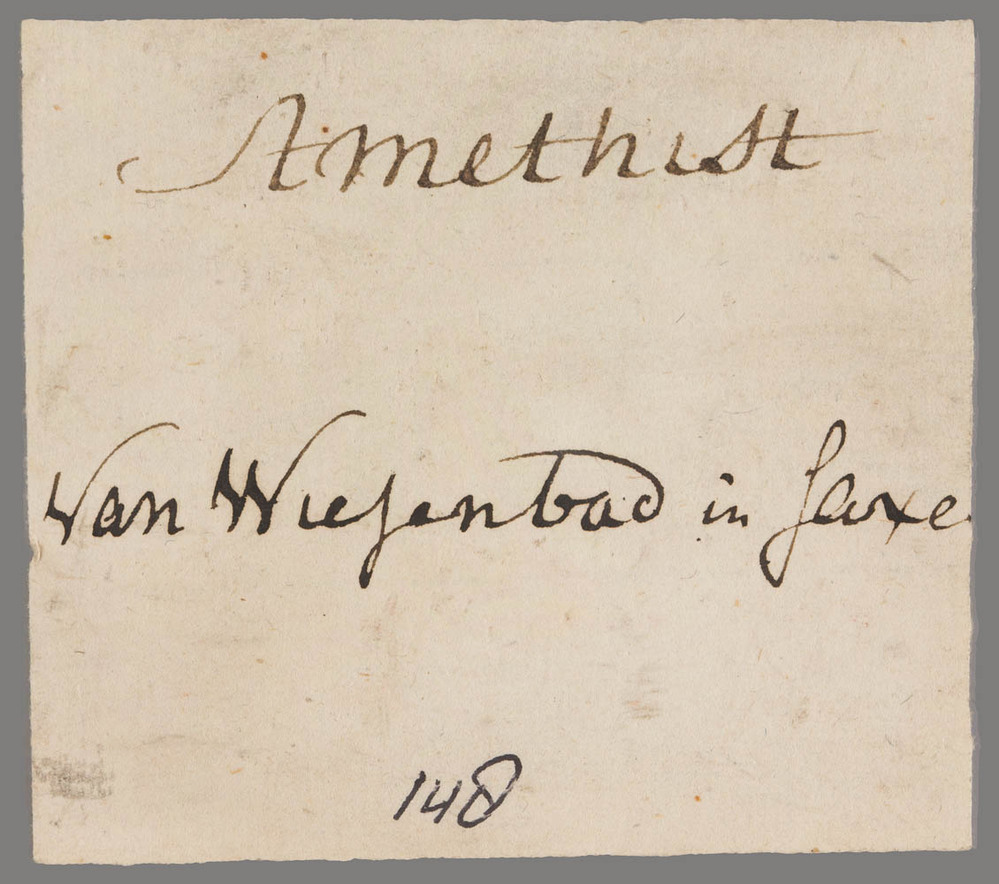 Amethist
Van Wiesenbad in Saxe
148